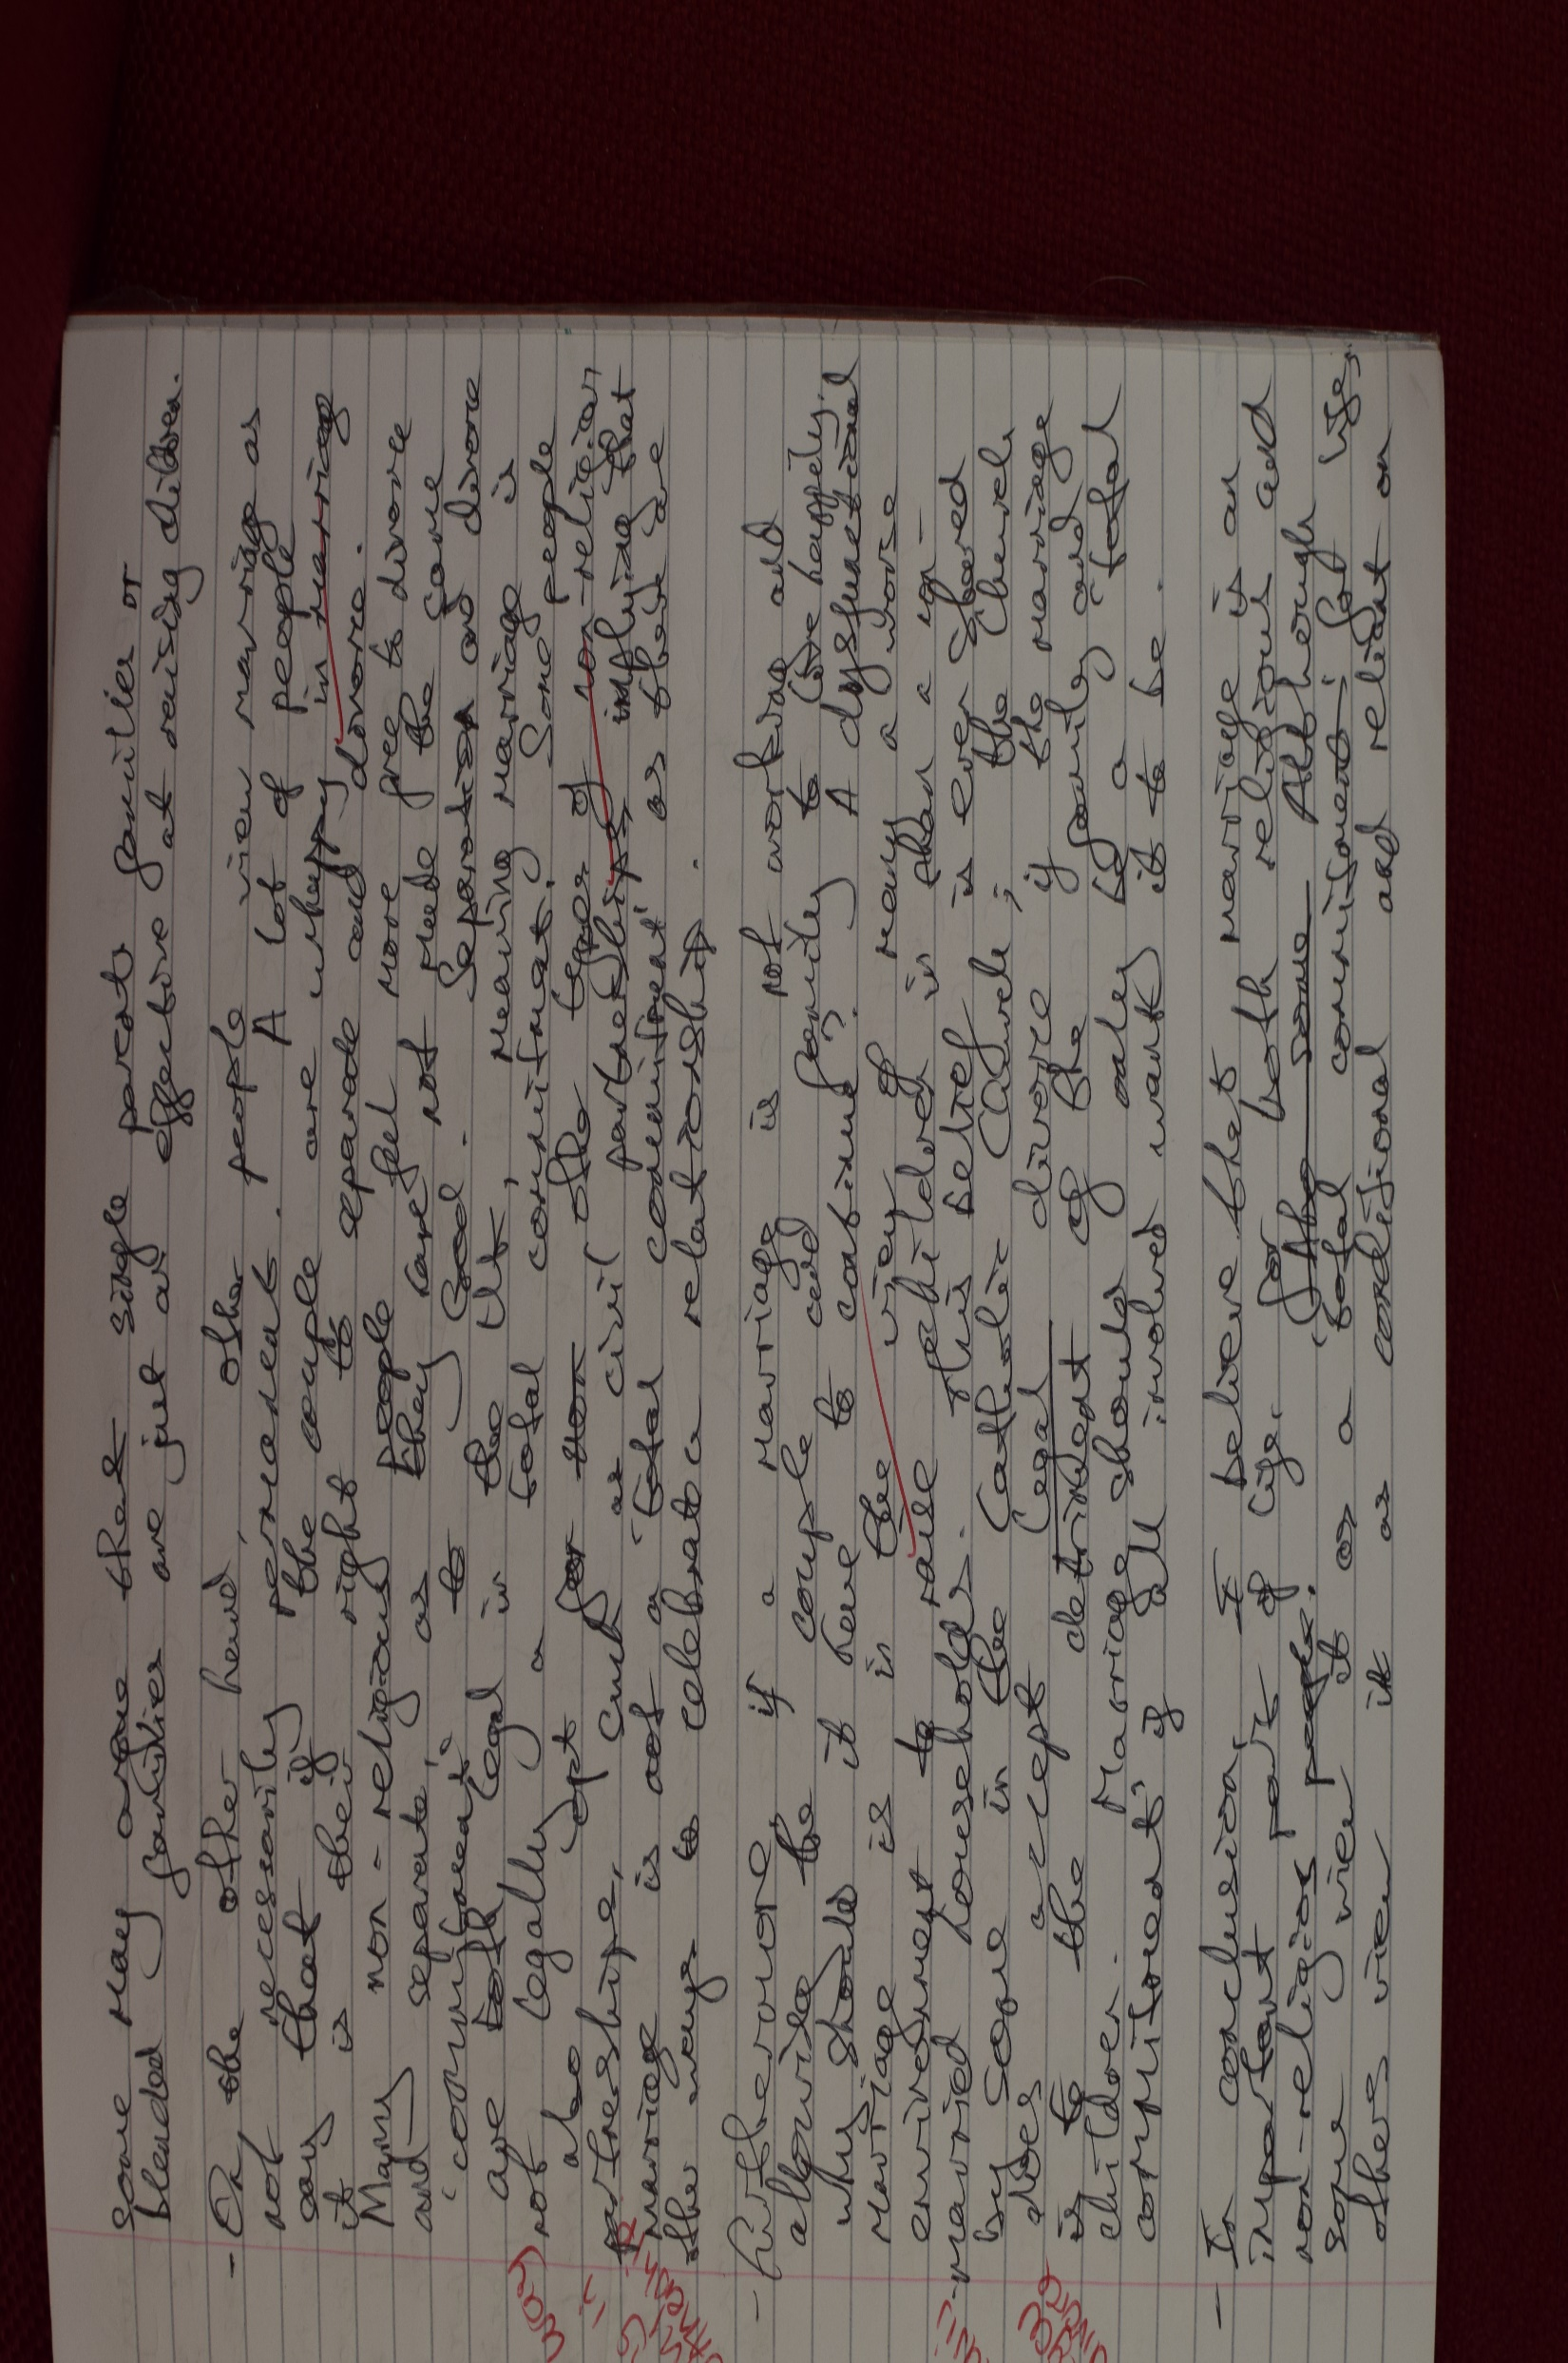 some may argue that single parent families or
blended families are just as effective at raising children.
- On the other hand, other people view marriage as
not necessarily permanent. A lot of people
say that if the couple are unhappy in marriage
it is their right to separate and divorce.
Many non-religious people feel more free to divorce
and separate, as they have not made the same
'commitment' to God. Separation and divorce
are both legal in the UK, meaning marriage is
not legally a total commitment. Some people
also opt for other types of non-religious
partnerships, such as civil partnerships, implying that
marriage is not a 'total commitment' as there are
other ways to celebrate a relationship.
- Furthermore, if a marriage is not working and
allowing the couple and family to live happily,
why should it have to continue? A dysfunctional
marriage is in the view of many a worse
environment to raise children in than a un-
married household. This belief is even shared
by some in the Catholic Church; the Church
does accept legal divorce if the marriage
is to the detriment of the family and
children. Marriage should only be a 'total
commitment' if all involved want it to be.
- In conclusion, I believe that marriage is an
important part of life for both religious and
non-religious people. Although
some view it as a 'total commitment' for life,
others view it as conditional and reliant on